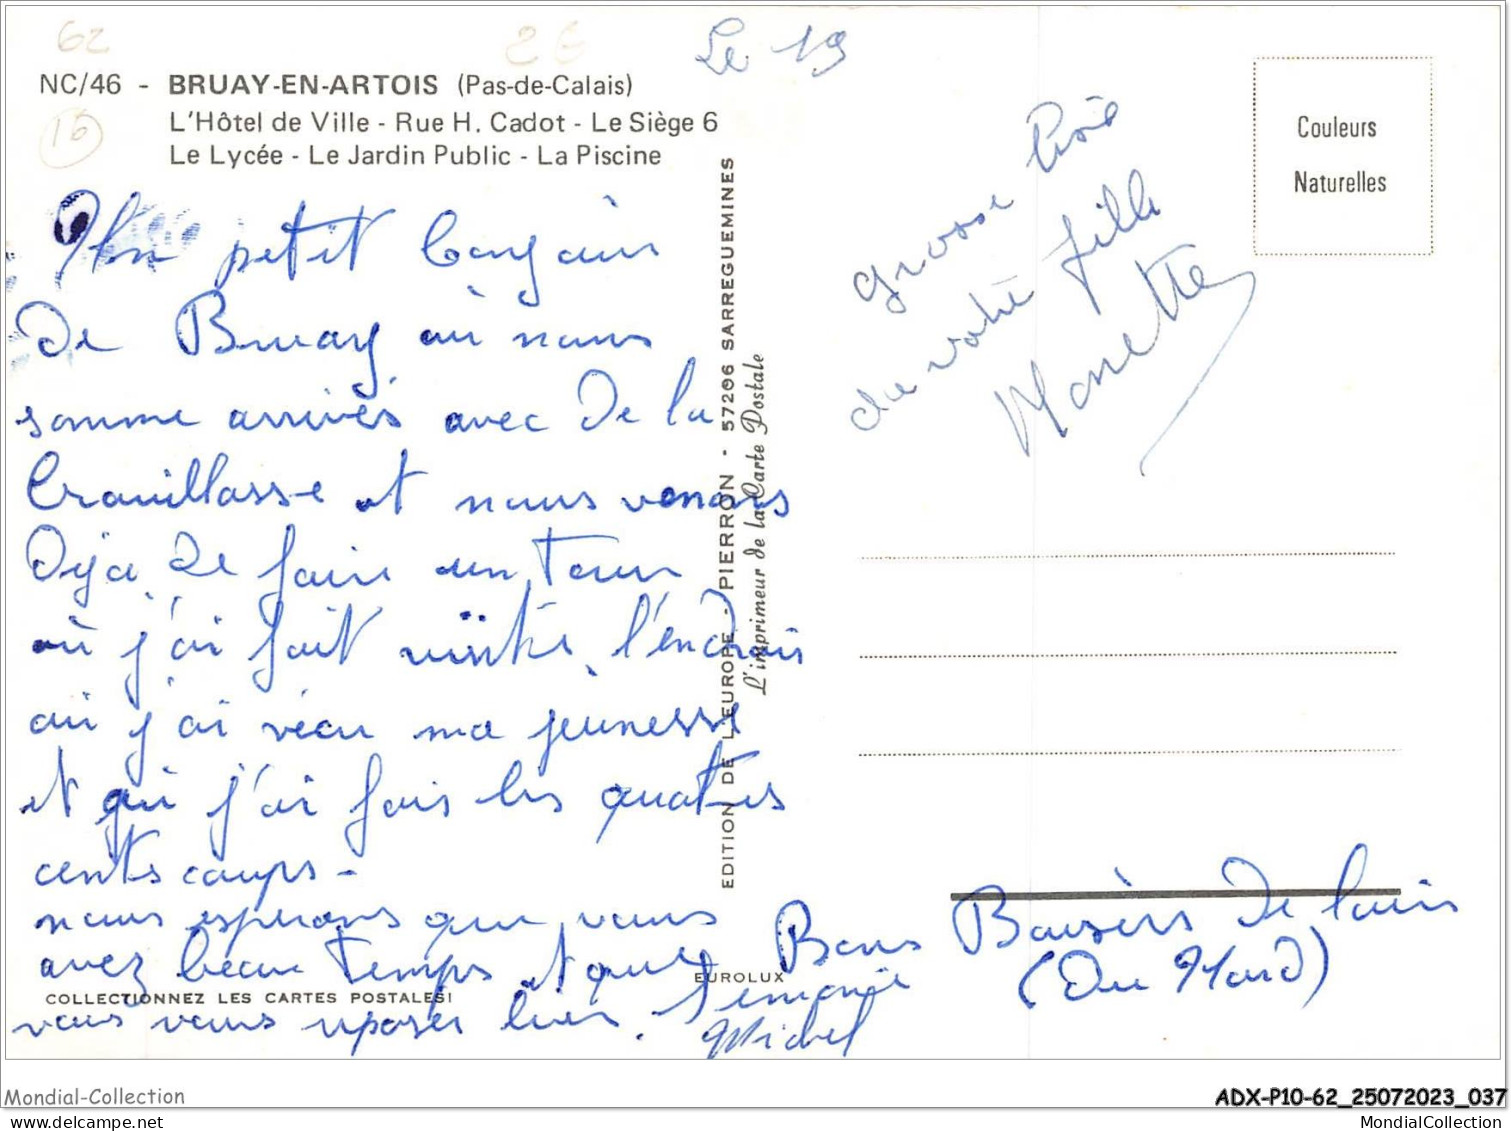 62
2€
Le 19
NC/46 - BRUAY-EN-ARTOIS (Pas-de-Calais)
16
L'Hôtel de Ville - Rue H. Cadot - Le Siège 6
Le Lycée - Le Jardin Public - La Piscine
Couleurs
Naturelles
Un petit bonjour
de Bruay où nous
somme arrivés avec de la
Crouillasse et nous venons
Déja de faire un tour
où j'ai fait visité l'endrois
où j'ai vécu ma jeunesse
et qui j'ai fais les quatres
cents coups -
nous esperons que vous
avez beau temps et que
vous vous reposer bien.
EDITION DE L'EUROPE - PIERRON - 57206 SARREGUEMINES
L'imprimeur de la Carte Postale
grosse bise
de votre fille
Monette
Bons Baisers de loin
(Du Nord)
Michel
EUROLUX
COLLECTIONNEZ LES CARTES POSTALES!
Mondial-Collection
ADX-P10-62_25072023_037
www.mondialcollection.com
MondialCollection